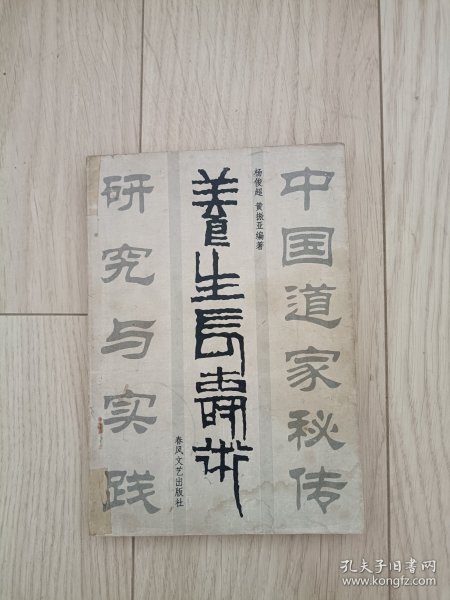 中国道家秘传
杨俊超 黄振亚编著
養生長壽術
春风文艺出版社
研究与实践
孔夫子旧书网
www.kongfz.com